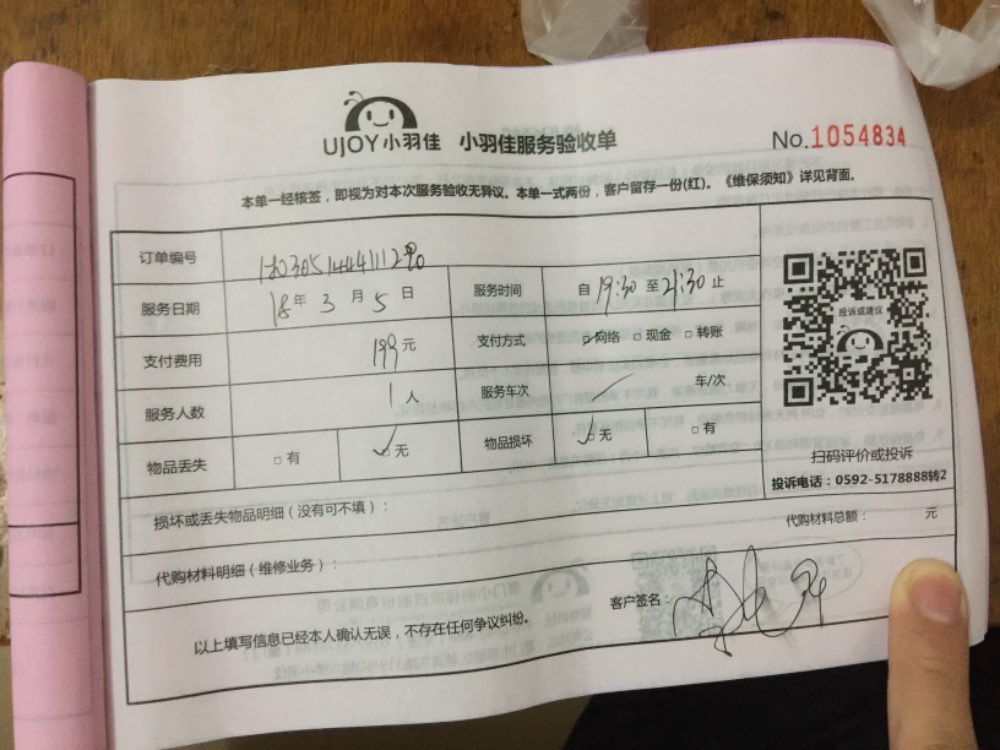 UJOY小羽佳 小羽佳服务验收单 No.1054834
本单一经核签，即视为对本次服务验收无异议。本单一式两份，客户留存一份(红)。《维保须知》详见背面。
订单编号
服务日期 18年 3 月 5 日 服务时间 自 19:30 至 21:30 止
支付费用 199元 支付方式 网络 现金 转账
服务人数 1人 服务车次 车/次
物品丢失 有 无 物品损坏 无 有
投诉或建议
扫码评价或投诉
投诉电话：0592-5178888转2
损坏或丢失物品明细（没有可不填）：
代购材料明细（维修业务）： 代购材料总额： 元
以上填写信息已经本人确认无误，不存在任何争议纠纷。 客户签名：